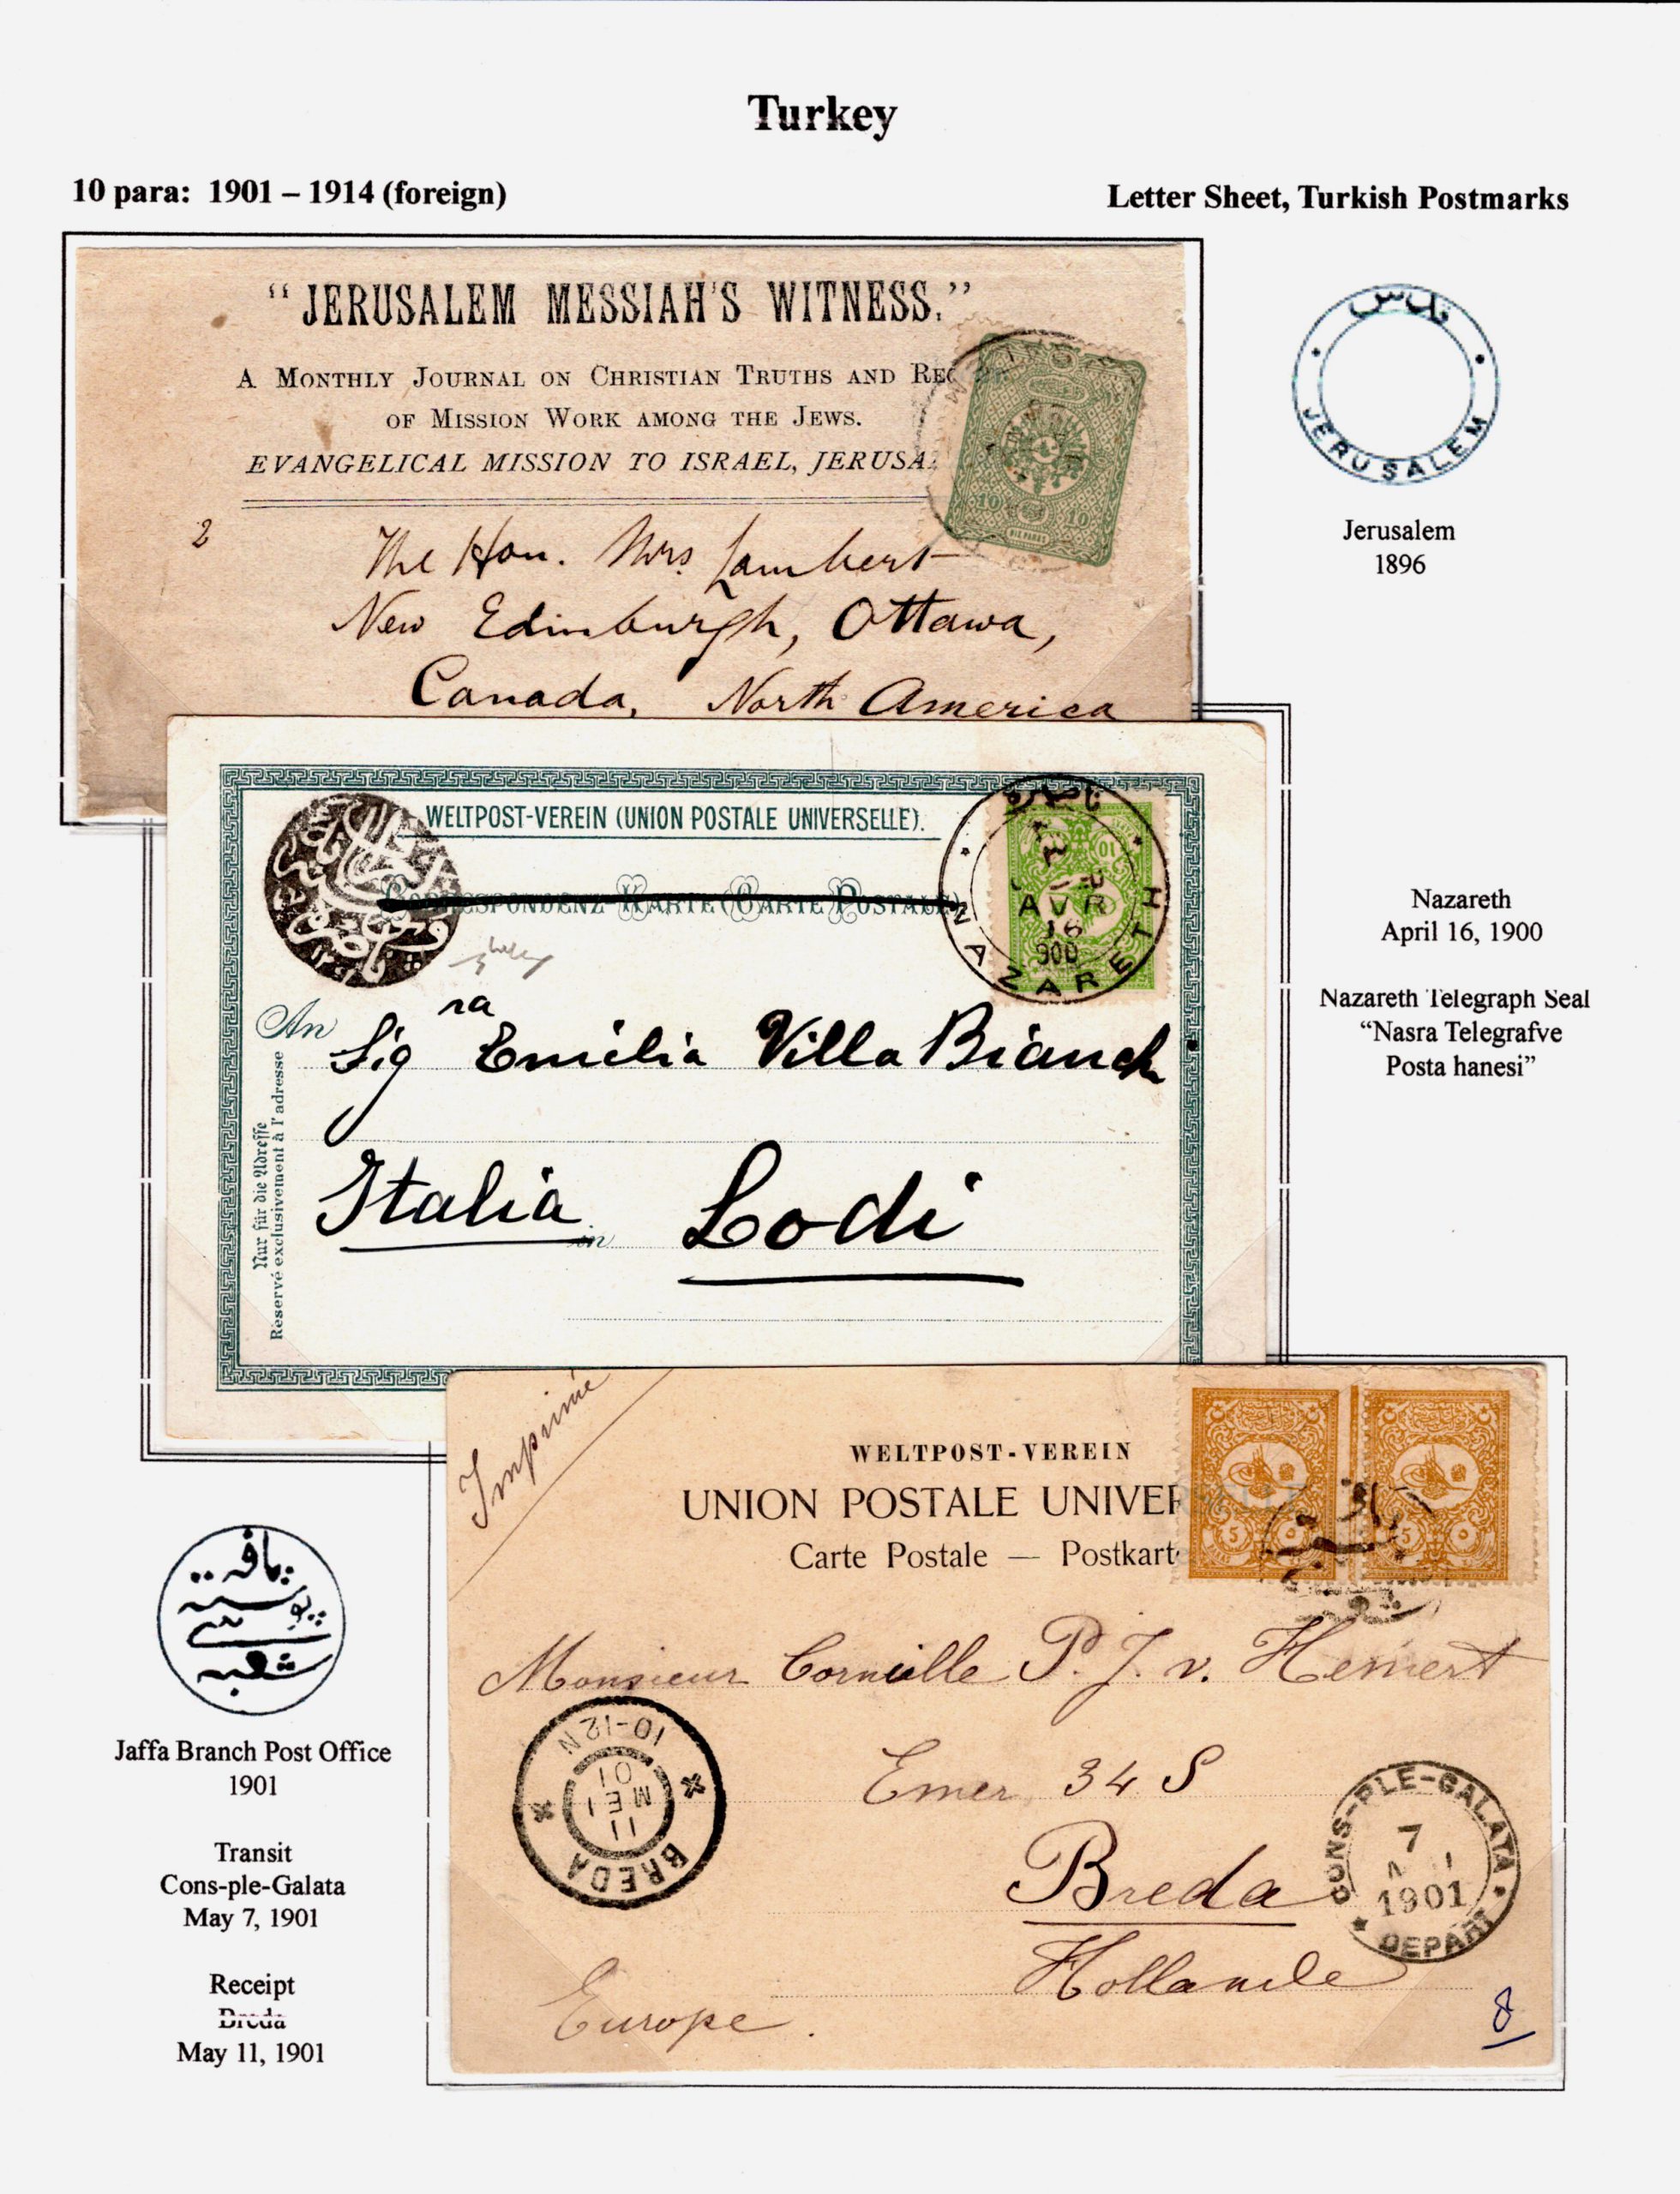 Turkey
10 para: 1901 – 1914 (foreign)
Letter Sheet, Turkish Postmarks
“JERUSALEM MESSIAH'S WITNESS.”
A MONTHLY JOURNAL ON CHRISTIAN TRUTHS AND REC
OF MISSION WORK AMONG THE JEWS.
EVANGELICAL MISSION TO ISRAEL, JERUSA
10 10
DIX PARAS
2
The Hon. Mrs. Lambert
New Edinburgh, Ottawa,
Canada, North America
قدس
JERUSALEM
Jerusalem
1896
WELTPOST-VEREIN (UNION POSTALE UNIVERSELLE).
CORRESPONDENZ-KARTE (CARTE POSTALE)
ناصره
AVR
16
900
NAZARETH
An
Sigra Emilia Villa Bianchi
Italia
in
Lodi
Nur für die Adresse
Réservé exclusivement à l'adresse
Nazareth
April 16, 1900
Nazareth Telegraph Seal
“Nasra Telegrafve
Posta hanesi”
Imprimé
WELTPOST-VEREIN
UNION POSTALE UNIVER
Carte Postale — Postkart
5 ٥
5 ٥
Monsieur Corneille P. J. v. Hemert
Emer 34 S
Breda
Hollande
Europe.
10-12N
11
MEI
01
BREDA
CONS-PLE-GALATA
7
1901
DEPART
8
يافه
پوسته
سى
شعبه
Jaffa Branch Post Office
1901
Transit
Cons-ple-Galata
May 7, 1901
Receipt
Breda
May 11, 1901